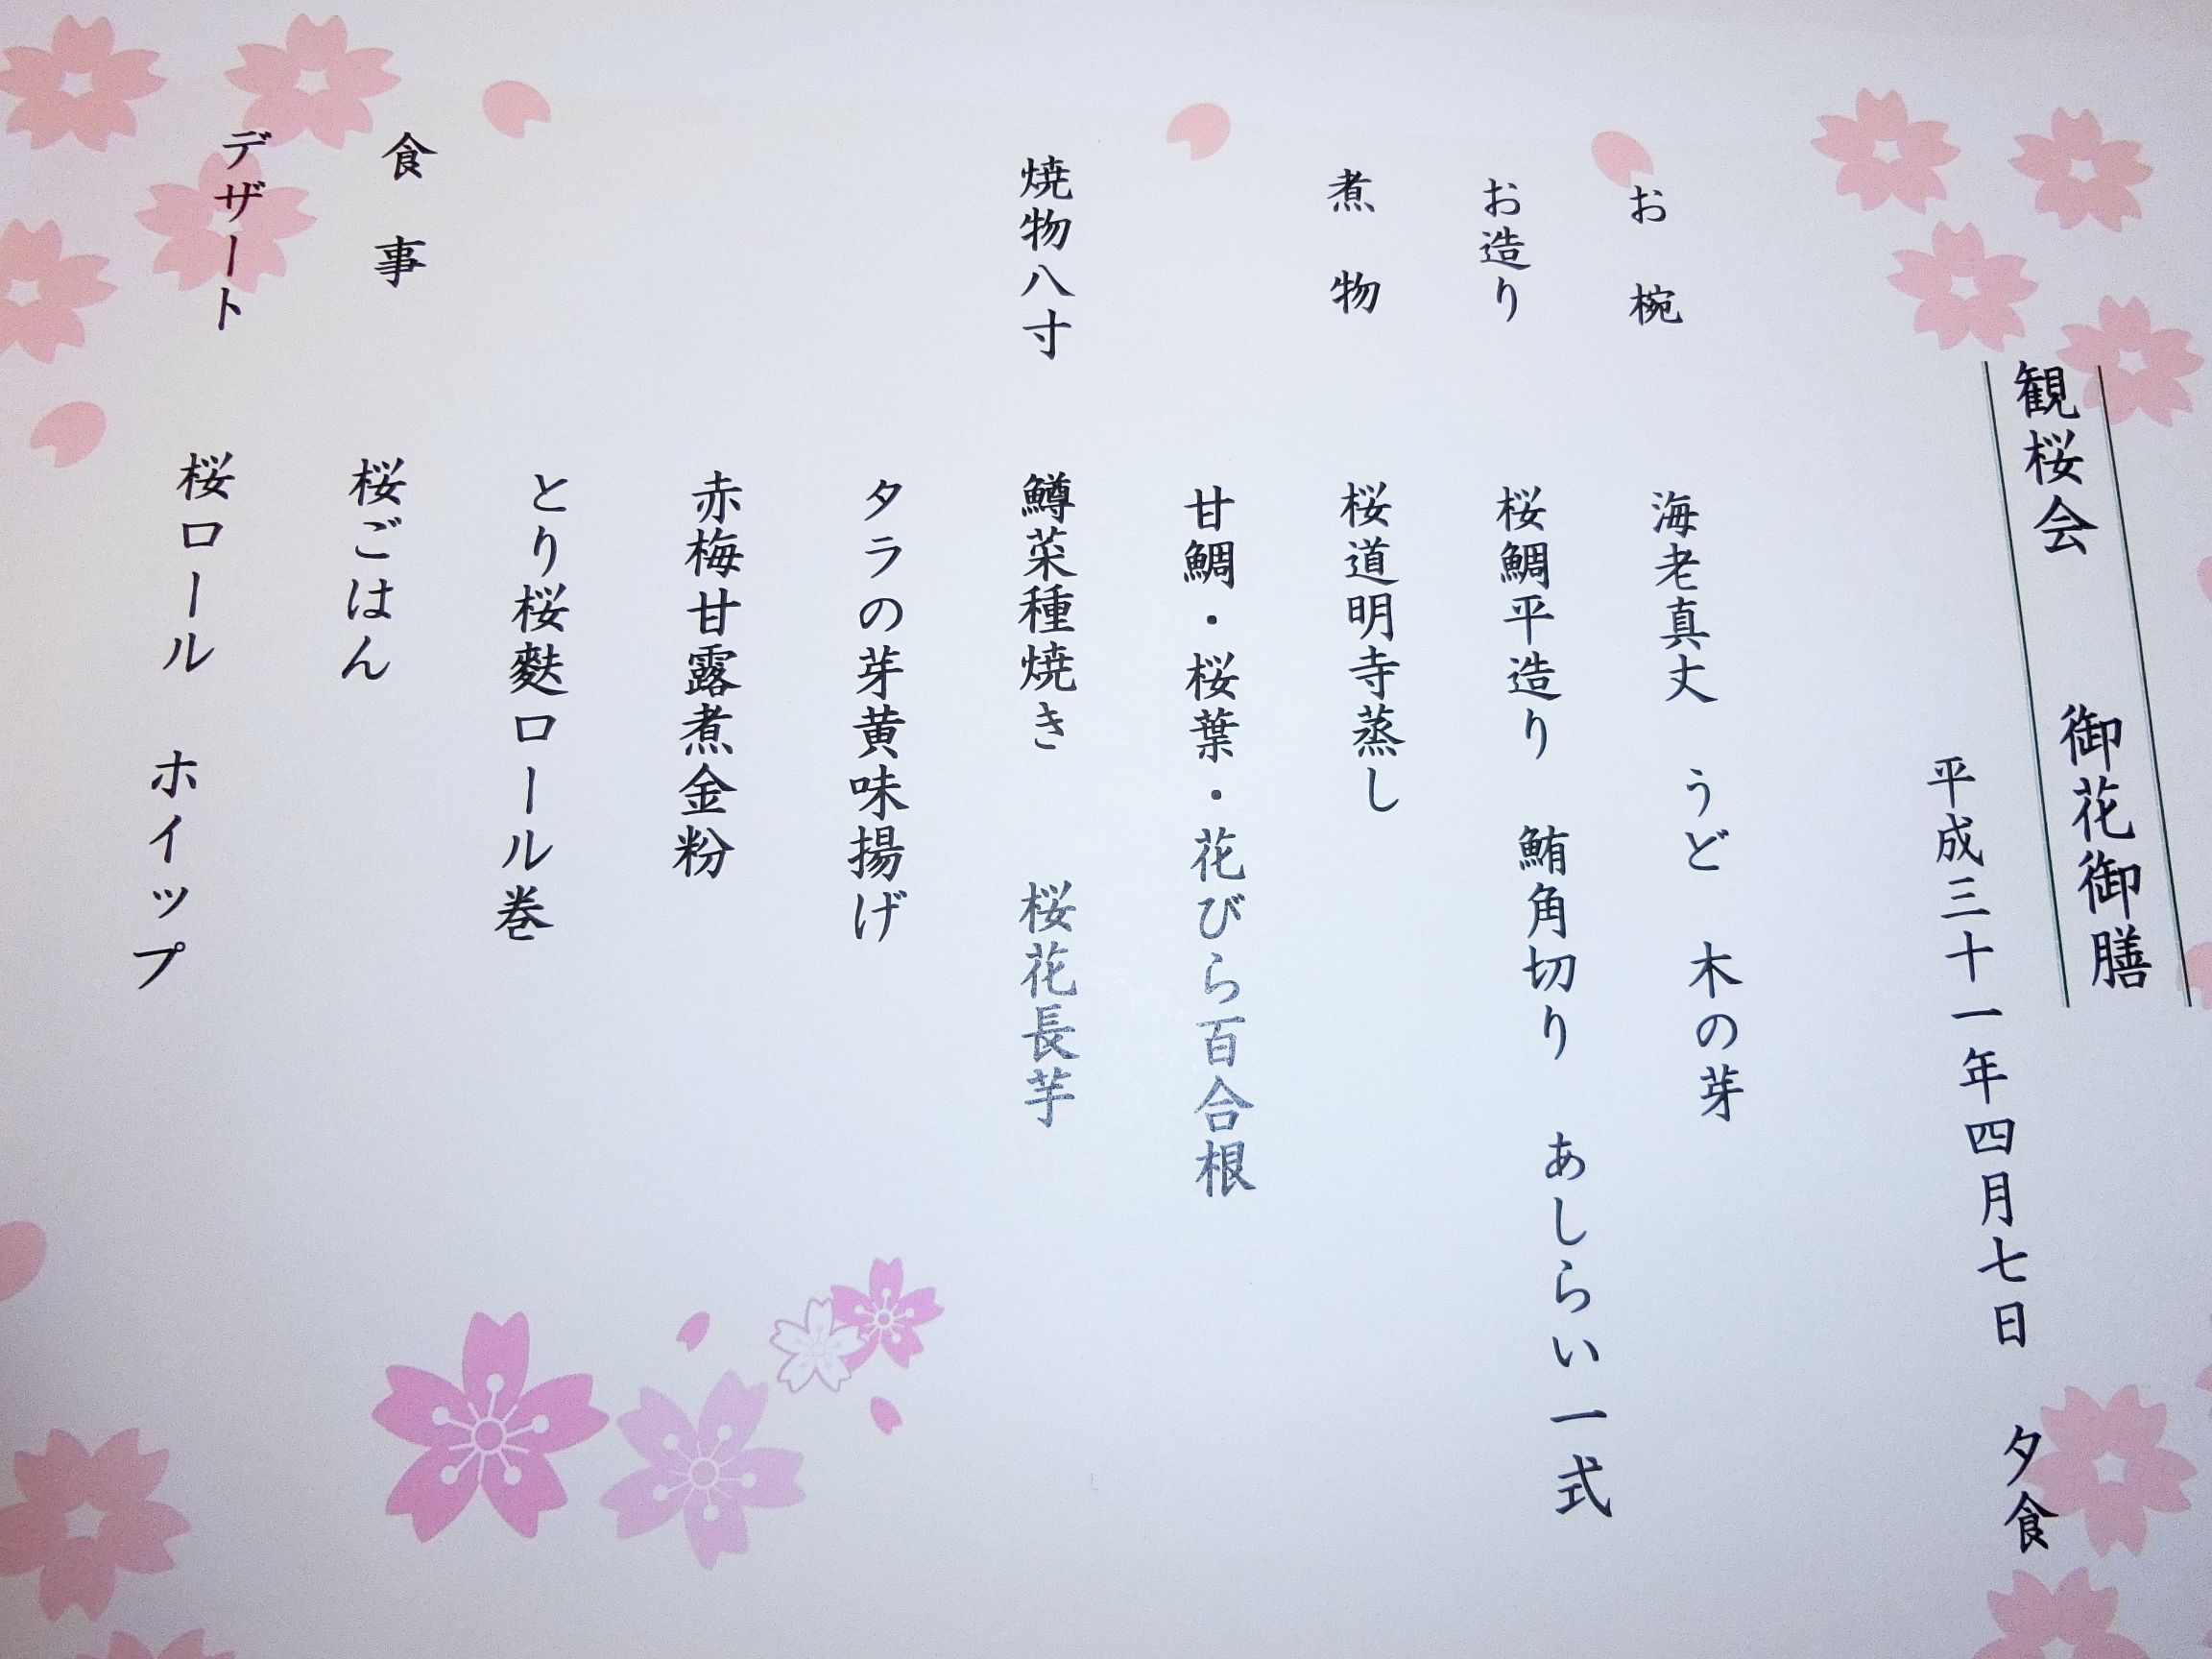 観桜会　御花御膳
平成三十一年四月七日　夕食
お椀　海老真丈　うど　木の芽
お造り　桜鯛平造り　鮪角切り　あしらい一式
煮物　桜道明寺蒸し
甘鯛・桜葉・花びら百合根
焼物八寸　鱒菜種焼き　桜花長芋
タラの芽黄味揚げ
赤梅甘露煮金粉
とり桜麩ロール巻
食事　桜ごはん
デザート　桜ロール　ホイップ